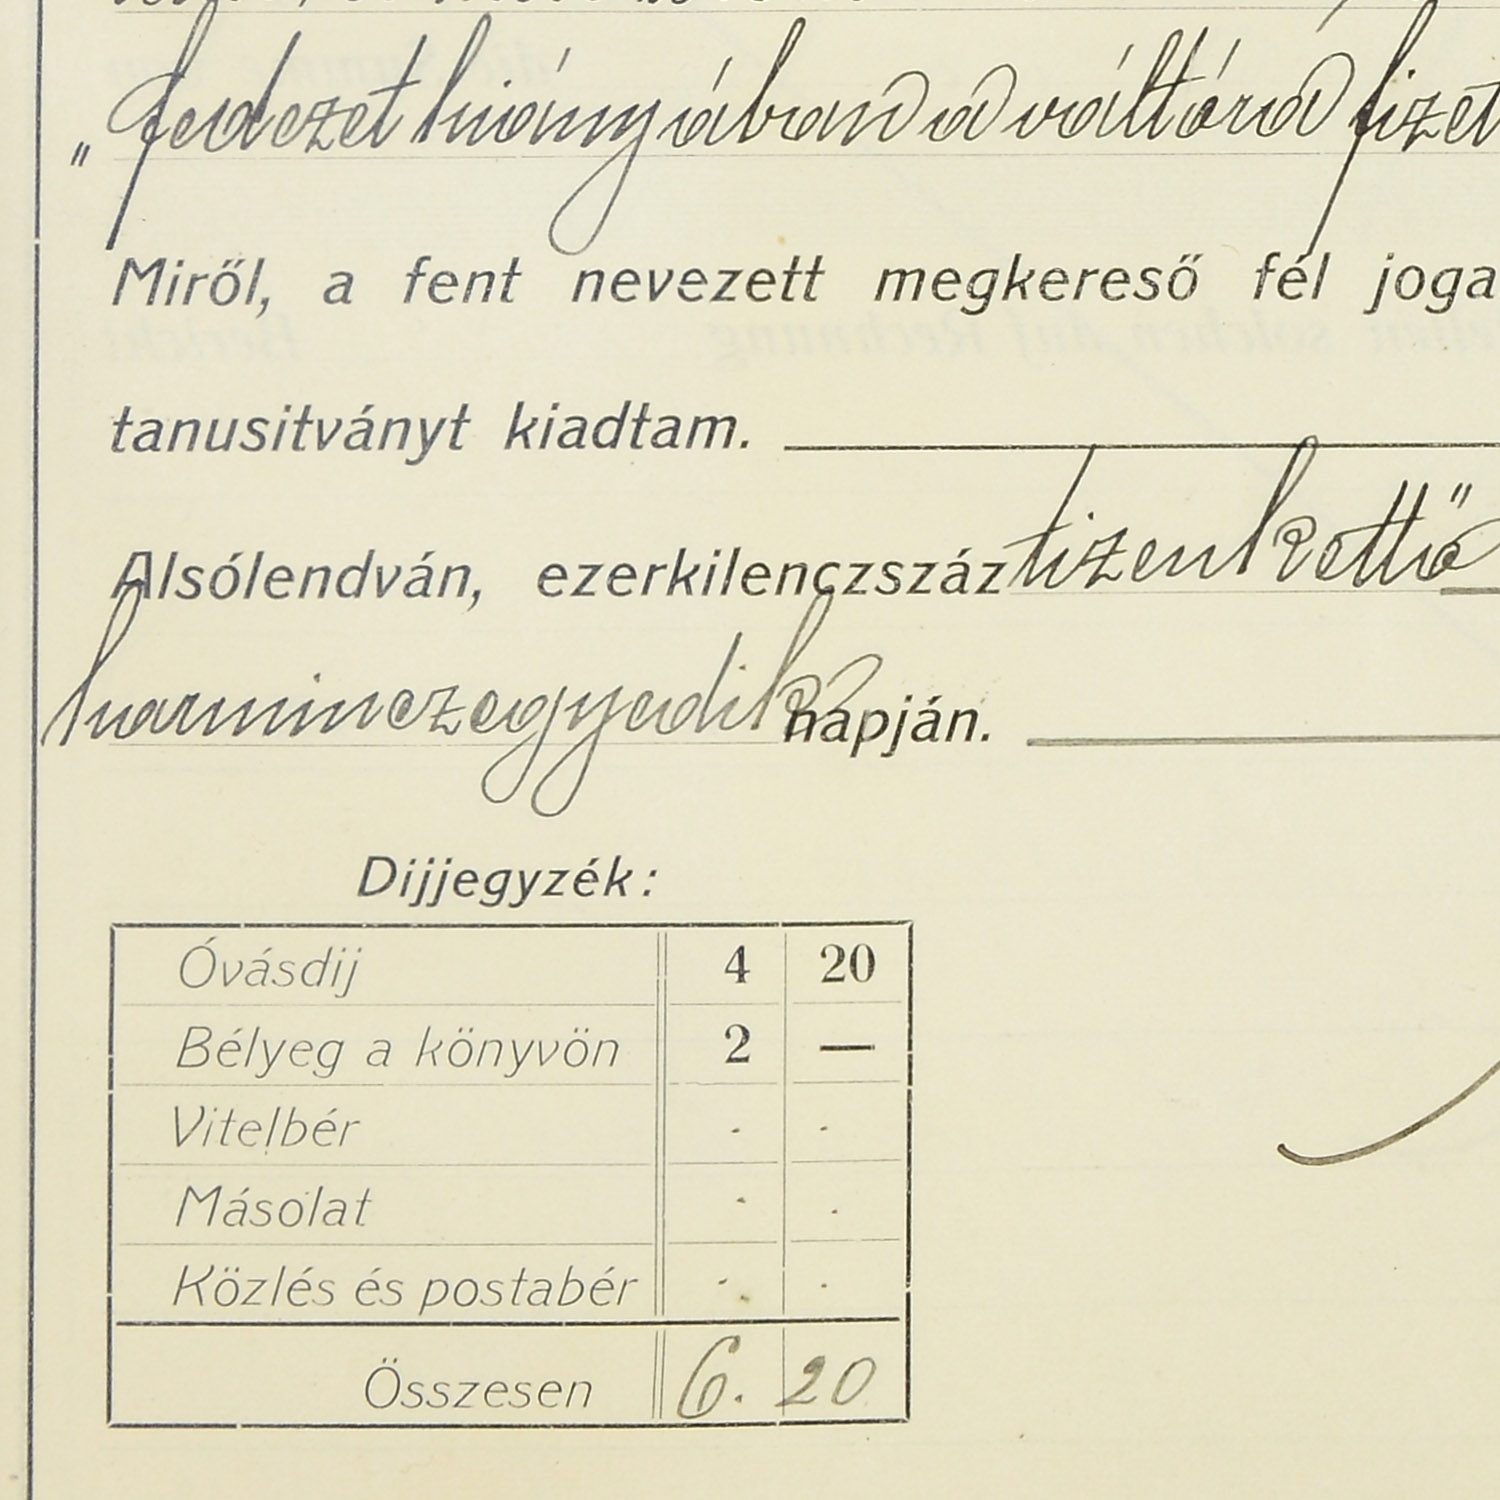 „ fedezet hiányában a váltóra fizet
Miről, a fent nevezett megkereső fél joga
tanusitványt kiadtam.
Alsólendván, ezerkilenczszáz tizenkettő
harminczegyedik napján.
Dijjegyzék:
Óvásdij 4 20
Bélyeg a könyvön 2 —
Vitelbér . .
Másolat . .
Közlés és postabér . .
Összesen 6. 20